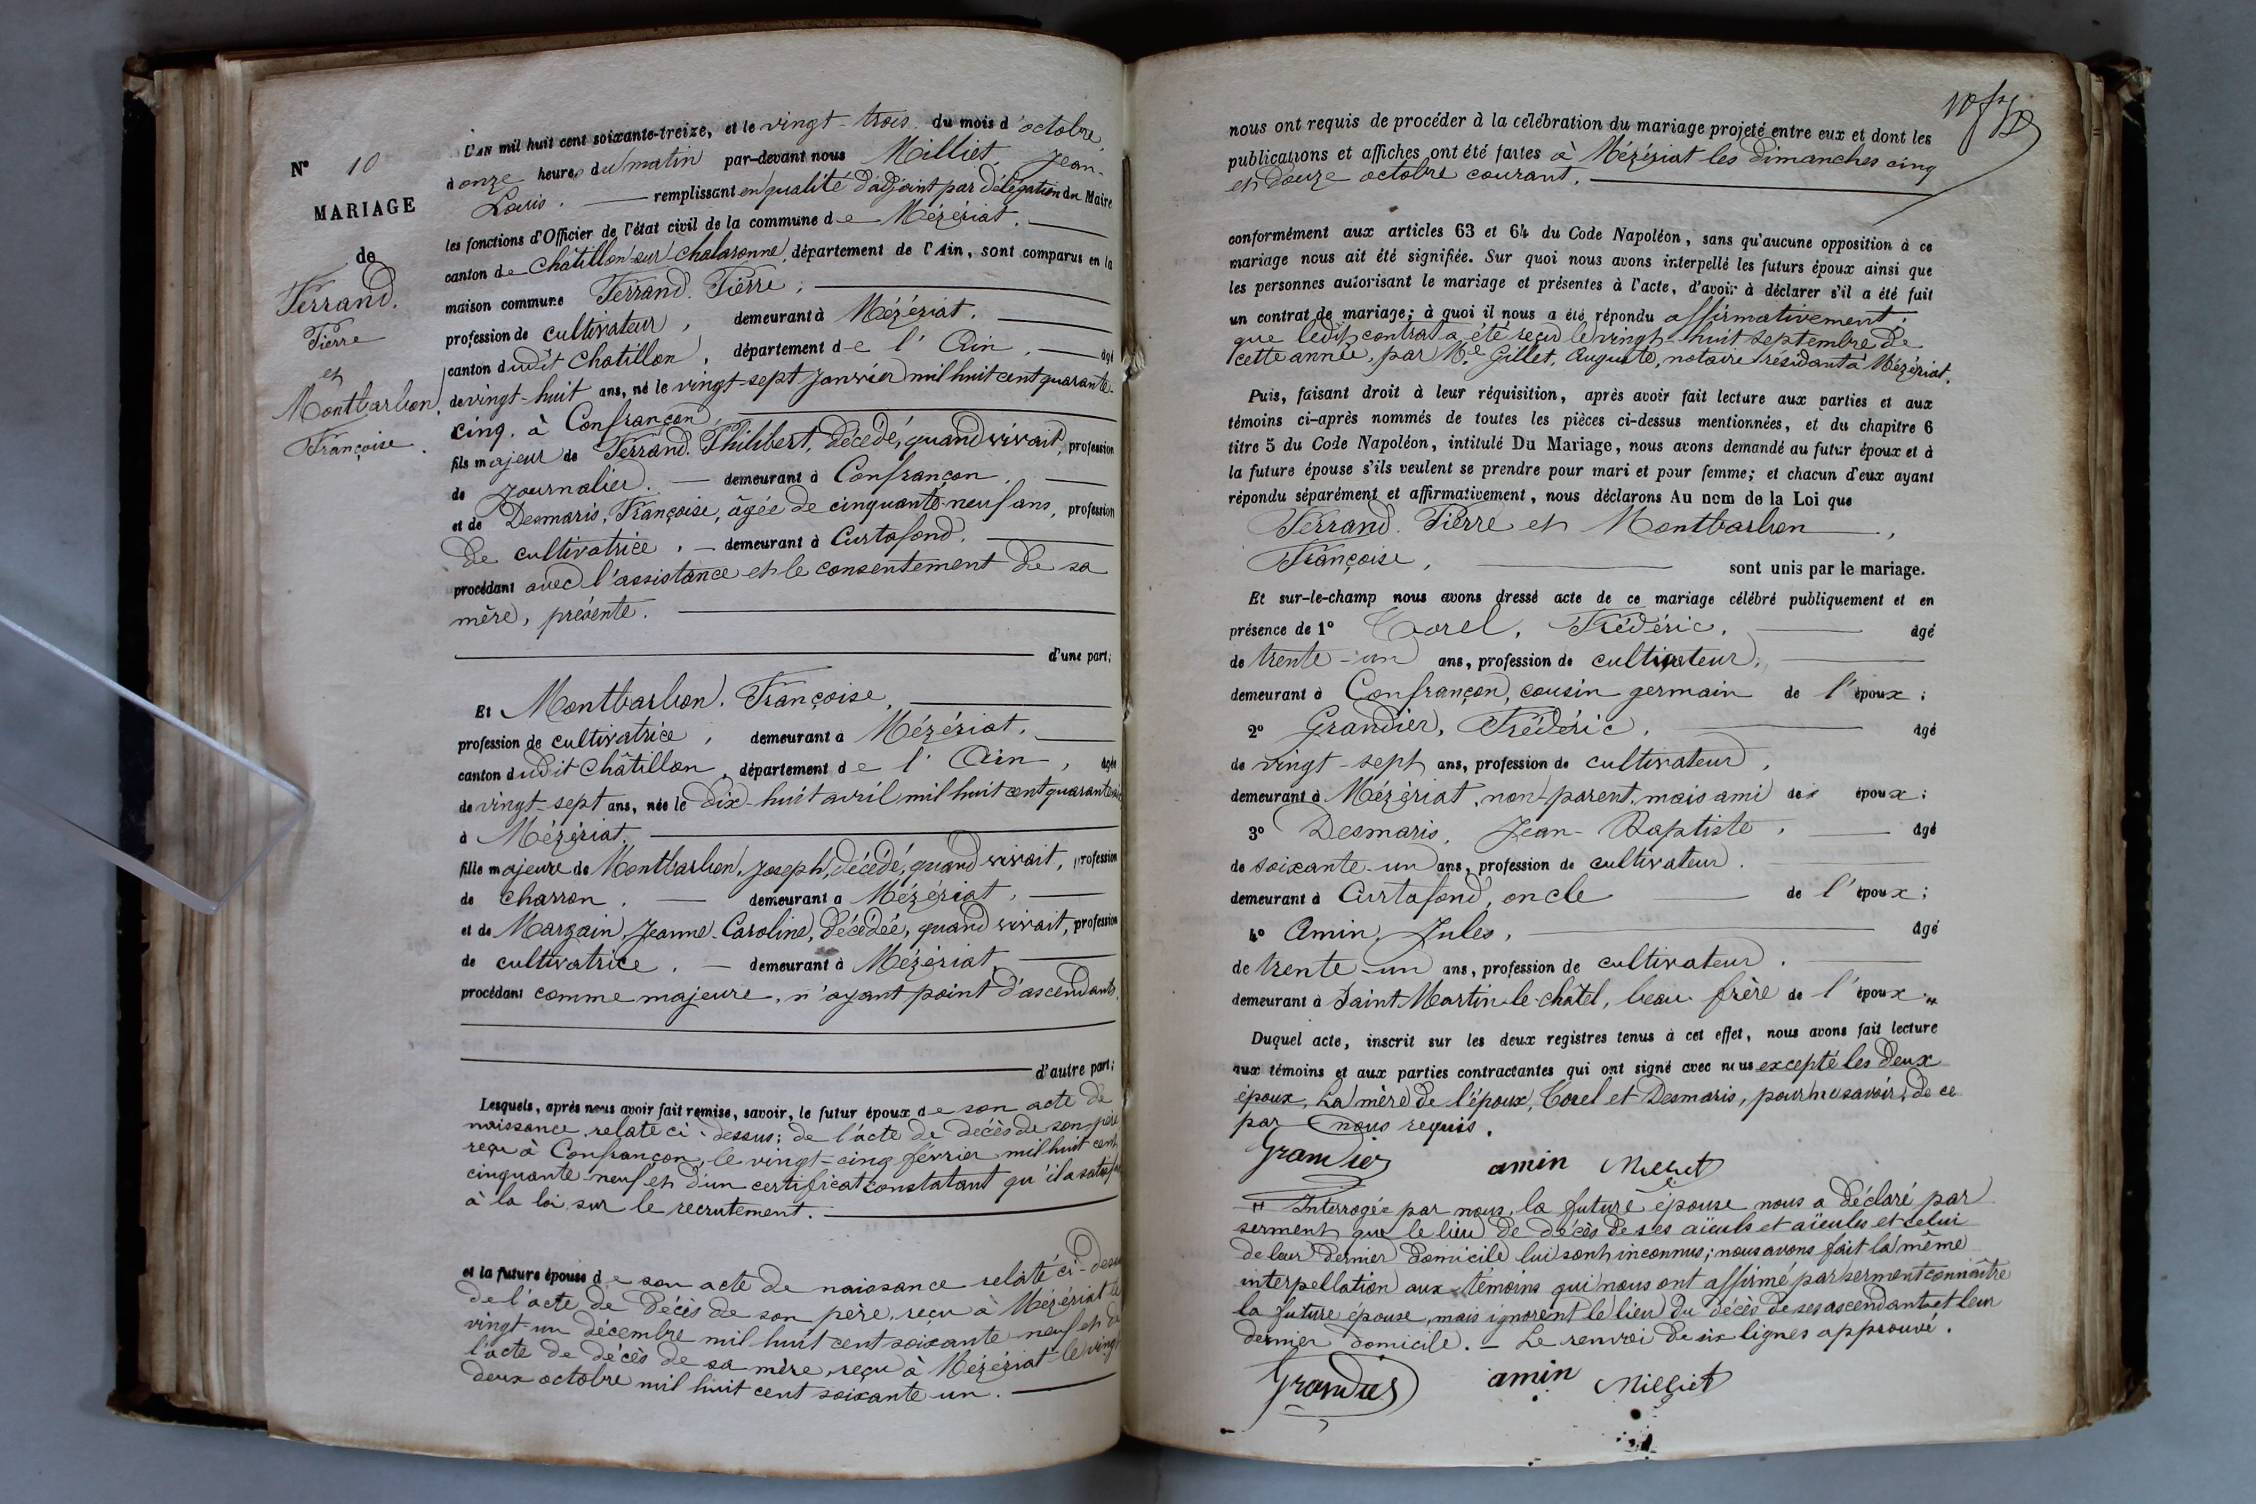 N° 10
MARIAGE
de
Ferrand.
Pierre
et
Montbarbon,
Françoise.
L'AN mil huit cent soixante-treize, et le vingt-trois du mois d'octobre,
à onze heures du matin par-devant nous Milliet, Jean-
Louis. remplissant en qualité d'adjoint par délégation du Maire
les fonctions d'Officier de l'état civil de la commune de Mézériat.
canton de Châtillon sur Chalaronne, département de l'Ain, sont comparus en la
maison commune Ferrand. Pierre;
profession de cultivateur, demeurant à Mézériat.
canton dudit Chatillon, département de l'Ain, âgé
de vingt-huit ans, né le vingt-sept janvier mil huit cent quarante-
cinq. à Confrançon,
fils majeur de Ferrand. Philibert, décédé, quand vivait, profession
de journalier. demeurant à Confrançon,
et de Desmaris, Françoise, âgée de cinquante-neuf ans, profession
de cultivatrice. demeurant à Curtafond.
procédant avec l'assistance et le consentement de sa
mère, présente.
d'une part;
Et Montbarbon. Françoise,
profession de cultivatrice, demeurant à Mézériat.
canton dudit Châtillon, département de l'Ain, âgée
de vingt-sept ans, née le dix-huit avril mil huit cent quarante-six
à Mézériat.
fille majeure de Montbarbon, Joseph, décédé, quand vivait, profession
de charron. demeurant à Mézériat,
et de Margain, Jeanne-Caroline, décédée, quand vivait, profession
de cultivatrice. demeurant à Mézériat
procédant comme majeure, n'ayant point d'ascendants,
d'autre part;
Lesquels, après nous avoir fait remise, savoir, le futur époux de son acte de
naissance relaté ci-dessus; de l'acte de décès de son père
reçu à Confrançon, le vingt-cinq février mil huit cent
cinquante-neuf et d'un certificat constatant qu'il a satisfait
à la loi sur le recrutement.
et la future épouse de son acte de naissance relaté ci-dessus
de l'acte de décès de son père, reçu à Mézériat le
vingt-un décembre mil huit cent soixante-neuf et de
l'acte de décès de sa mère, reçu à Mézériat le vingt-
deux octobre mil huit cent soixante-un.
nous ont requis de procéder à la célébration du mariage projeté entre eux et dont les
publications et affiches ont été faites à Mézériat les dimanches cinq
et douze octobre courant.
conformément aux articles 63 et 64 du Code Napoléon, sans qu'aucune opposition à ce
mariage nous ait été signifiée. Sur quoi nous avons interpellé les futurs époux ainsi que
les personnes autorisant le mariage et présentes à l'acte, d'avoir à déclarer s'il a été fait
un contrat de mariage; à quoi il nous a été répondu affirmativement
que ledit contrat a été reçu le vingt-huit septembre de
cette année, par Me Gillet, Auguste, notaire résidant à Mézériat.
Puis, faisant droit à leur réquisition, après avoir fait lecture aux parties et aux
témoins ci-après nommés de toutes les pièces ci-dessus mentionnées, et du chapitre 6
titre 5 du Code Napoléon, intitulé Du Mariage, nous avons demandé au futur époux et à
la future épouse s'ils veulent se prendre pour mari et pour femme; et chacun d'eux ayant
répondu séparément et affirmativement, nous déclarons Au nom de la Loi que
Ferrand. Pierre et Montbarbon,
Françoise, sont unis par le mariage.
Et sur-le-champ nous avons dressé acte de ce mariage célébré publiquement et en
présence de 1° Corel, Frédéric, âgé
de trente-un ans, profession de cultivateur,
demeurant à Confrançon, cousin germain de l'époux;
2° Grandier, Frédéric, âgé
de vingt-sept ans, profession de cultivateur,
demeurant à Mézériat, non parent, mais ami des époux;
3° Desmaris, Jean-Baptiste, âgé
de soixante-un ans, profession de cultivateur.
demeurant à Curtafond, oncle de l'époux;
4° Amin, Jules, âgé
de trente-un ans, profession de cultivateur.
demeurant à Saint Martin-le-châtel, beau-frère de l'époux.
Duquel acte, inscrit sur les deux registres tenus à cet effet, nous avons fait lecture
aux témoins et aux parties contractantes qui ont signé avec nous excepté les deux
époux, la mère de l'époux, Corel et Desmaris, pour ne savoir, de ce
par nous requis.
Grandier amin Milliet
# Interrogée par nous, la future épouse nous a déclaré par
serment que le lieu de décès de ses aïeuls et aïeules et celui
de leur dernier domicile lui sont inconnus; nous avons fait la même
interpellation aux témoins qui nous ont affirmé par serment connaître
la future épouse, mais ignorent le lieu du décès de ses ascendants et leur
dernier domicile. — Le renvoi de six lignes approuvé.
Grandier amin Milliet